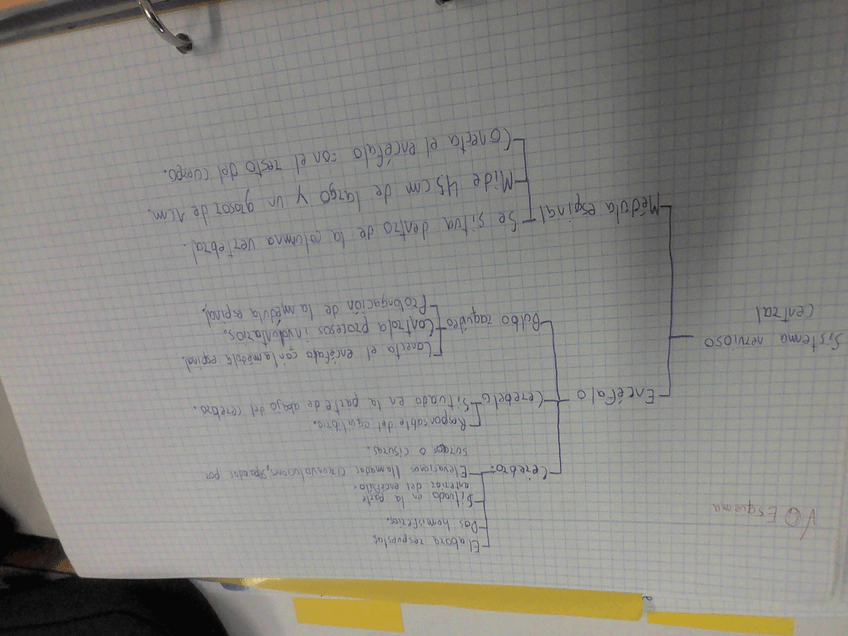 Esquema
Sistema nervioso
central
Encéfalo
Cerebro:
Elabora respuestas
Dos hemisferios.
Situado en la parte
anterior del encéfalo.
Elevaciones llamadas circunvoluciones, separadas por
surcos o cisuras.
Cerebelo
Responsable del equilibrio.
Situado en la parte de abajo del cerebro.
Bulbo raquídeo
Conecta el encéfalo con la médula espinal.
Controla procesos involuntarios.
Prolongación de la médula espinal.
Médula espinal
Se situa dentro de la columna vertebral.
Mide 45 cm de largo y un grosor de 1cm.
Conecta el encéfalo con el resto del cuerpo.